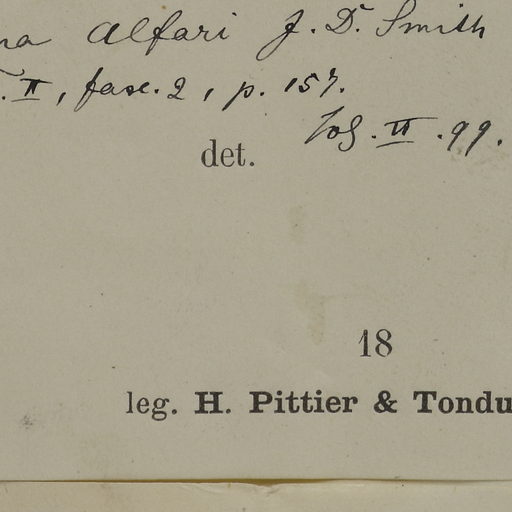 na Alfari J. D. Smith
. II, fasc. 2, p. 157.
II . 99.
det.
18
leg. H. Pittier & Tondu